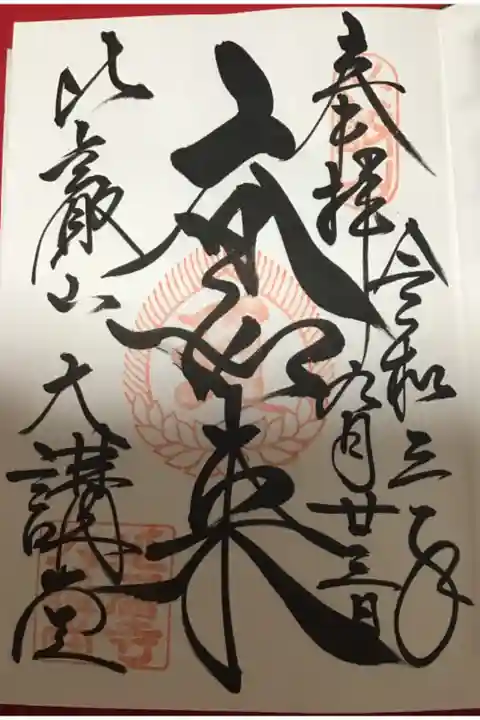 奉拝
令和三年
九月廿三日
大日如来
比叡山
大講堂